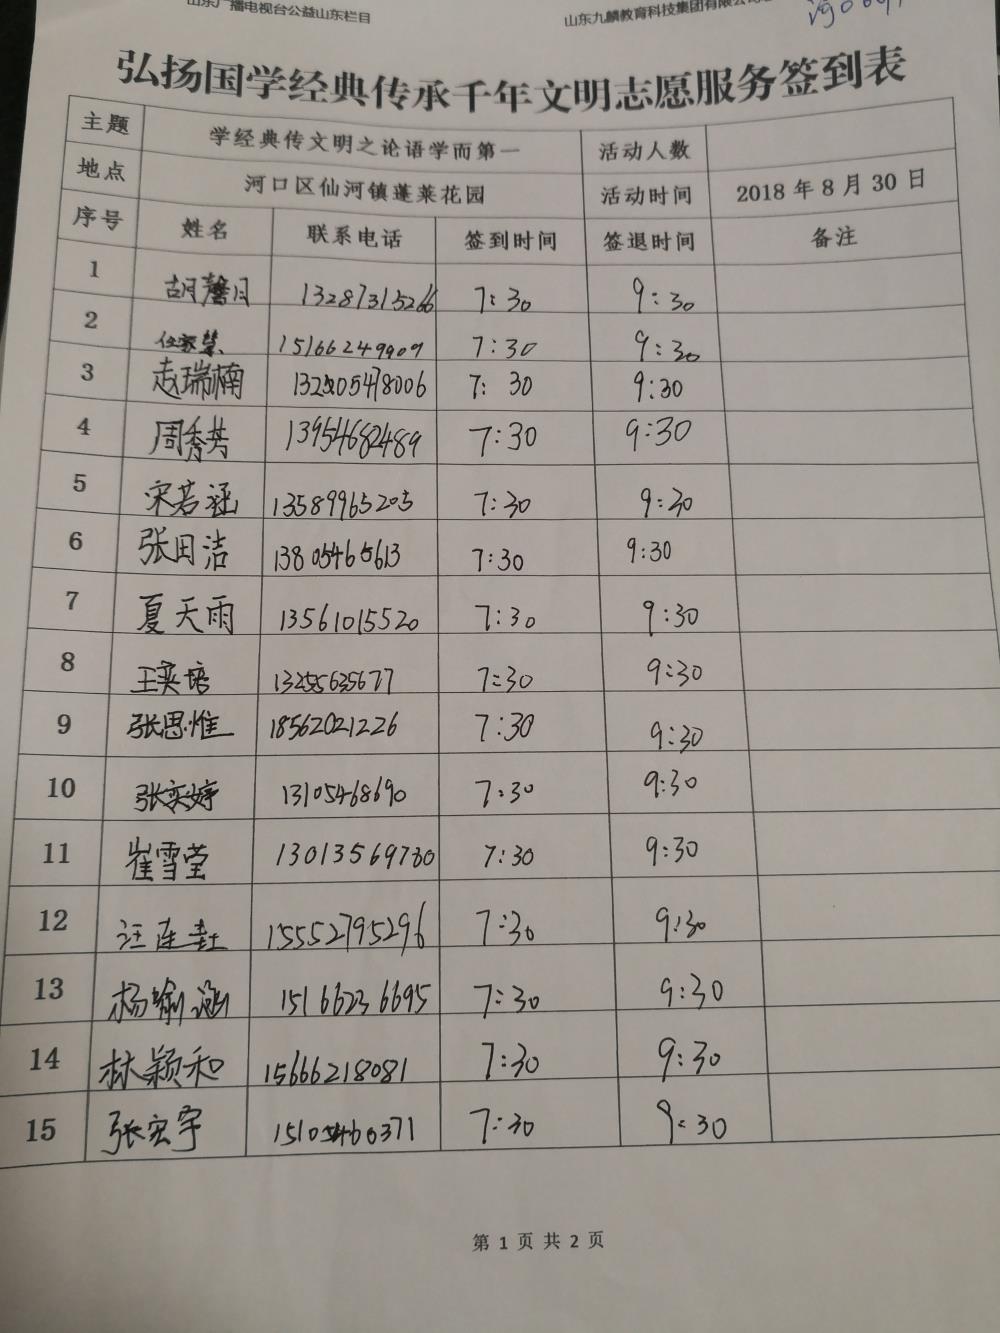 山东广播电视台公益山东栏目
山东九麟教育科技集团有限公司
弘扬国学经典传承千年文明志愿服务签到表
主题 学经典传文明之论语学而第一 活动人数
地点 河口区仙河镇蓬莱花园 活动时间 2018 年 8 月 30 日
序号 姓名 联系电话 签到时间 签退时间 备注
1 胡馨月 13287315266 7:30 9:30
2 15166249909 7:30 9:30
3 赵瑞楠 7:30 9:30
4 周秀芳 13954682489 7:30 9:30
5 宋若涵 13589965205 7:30 9:30
6 张田洁 13805465613 7:30 9:30
7 夏天雨 13561015520 7:30 9:30
8 王奕培 13255635677 7:30 9:30
9 张思惟 18562021226 7:30 9:30
10 张奕婷 13105468690 7:30 9:30
11 崔雪莹 13013569730 7:30 9:30
12 15552795296 7:30 9:30
13 杨瑜涵 15166236695 7:30 9:30
14 林颖和 15666218081 7:30 9:30
15 张宏宇 15105460371 7:30 9:30
第 1 页 共 2 页